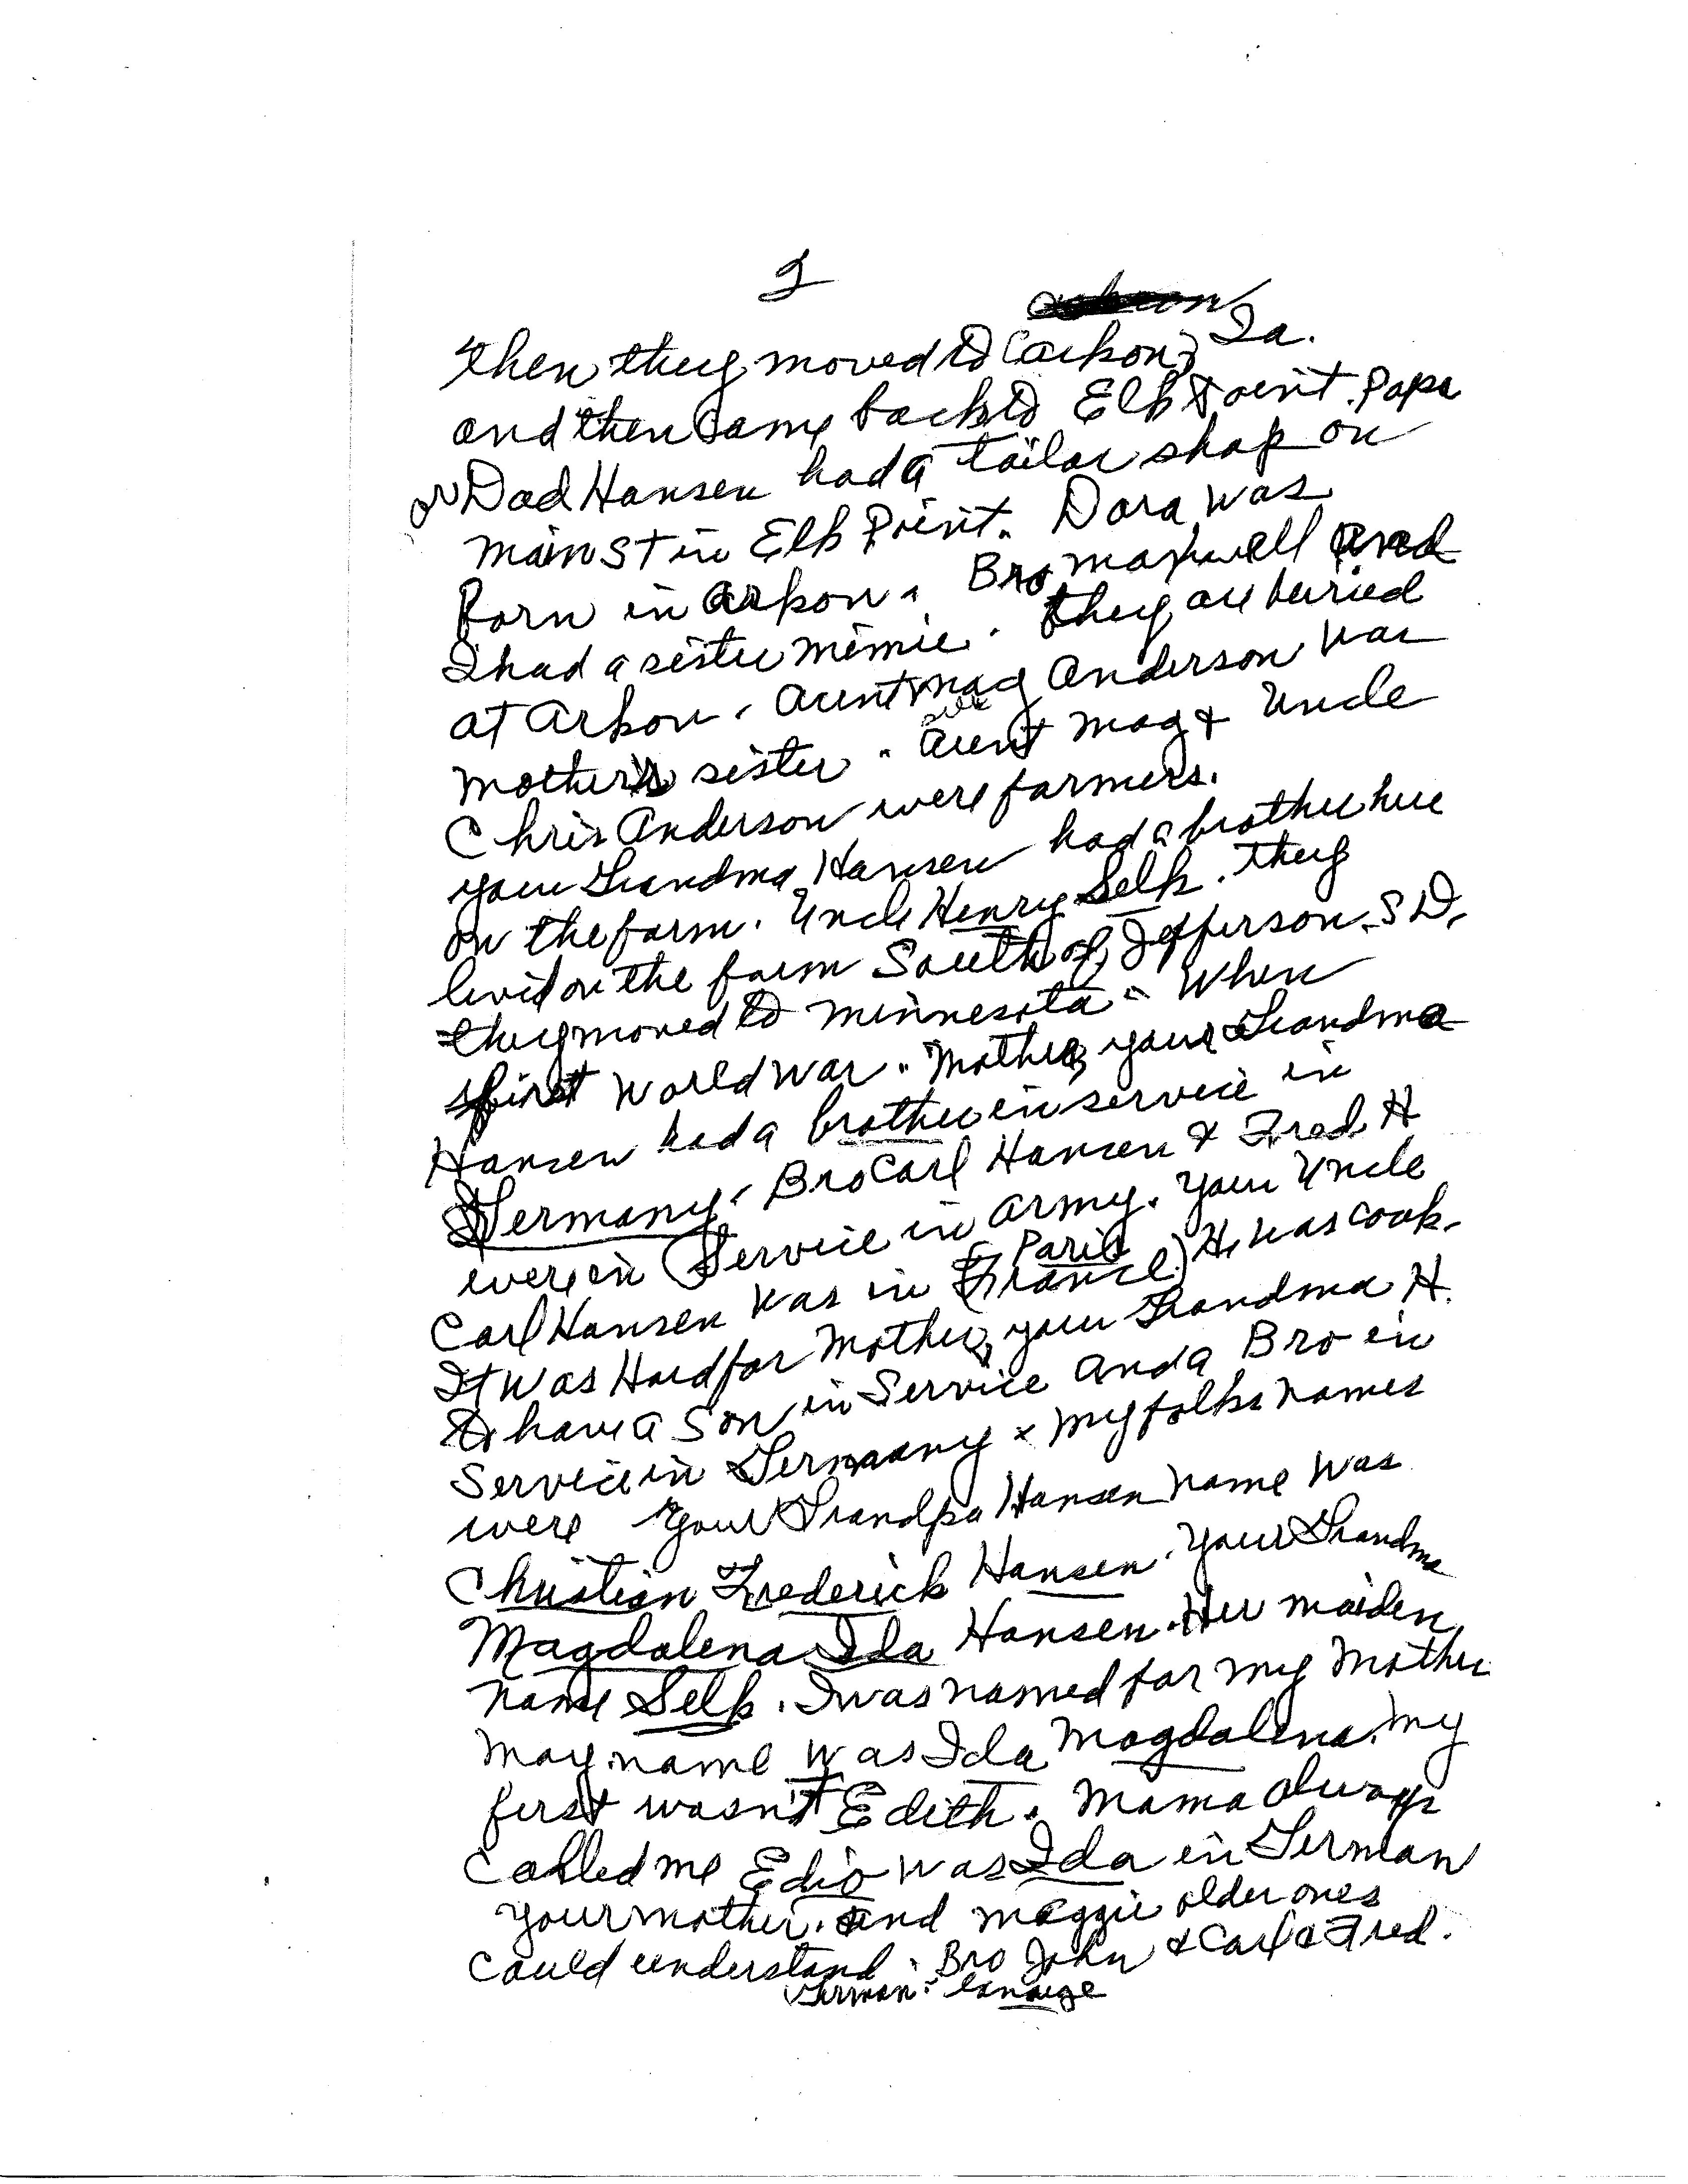 2
Then they moved to Ia.
and then came back to Elk Point. Papa
or Dad Hansen had a tailor shop on
main St in Elk Point. Dora was
Born in Arkon. Bro Maxwell and
I had a sister Mimie. They are buried
at Arkon. Aunt Mag Anderson was
mother's sister. Aunt Mag & Uncle
Chris Anderson were farmers.
your Grandma Hansen had a brother here
on the farm. Uncle Henry Selk. They
livid on the farm South of Jefferson, S D.
they moved to Minnesota. When
first World War. Mother, your Grandma
Hansen had a brother in service in
Germany. Bro Carl Hansen & Fred H
were in Service in army. your Uncle
Paris
Carl Hansen was in (France) He was cook.
It was Hard for Mother, your Grandma H.
to have a son in Service and a Bro in
Service in Germany. My folks names
were your Grandpa Hansen name was
Christian Frederick Hansen. your Grandma
Magdalena Ida Hansen. Her maiden
name Selk. I was named for my Mother
May name was Ida Magdalena. My
first wasn't Edith. Mama always
called me was Ida in German
your mother. and Maggie older ones
could understand. Bro John & Carl & Fred.
German lanauge